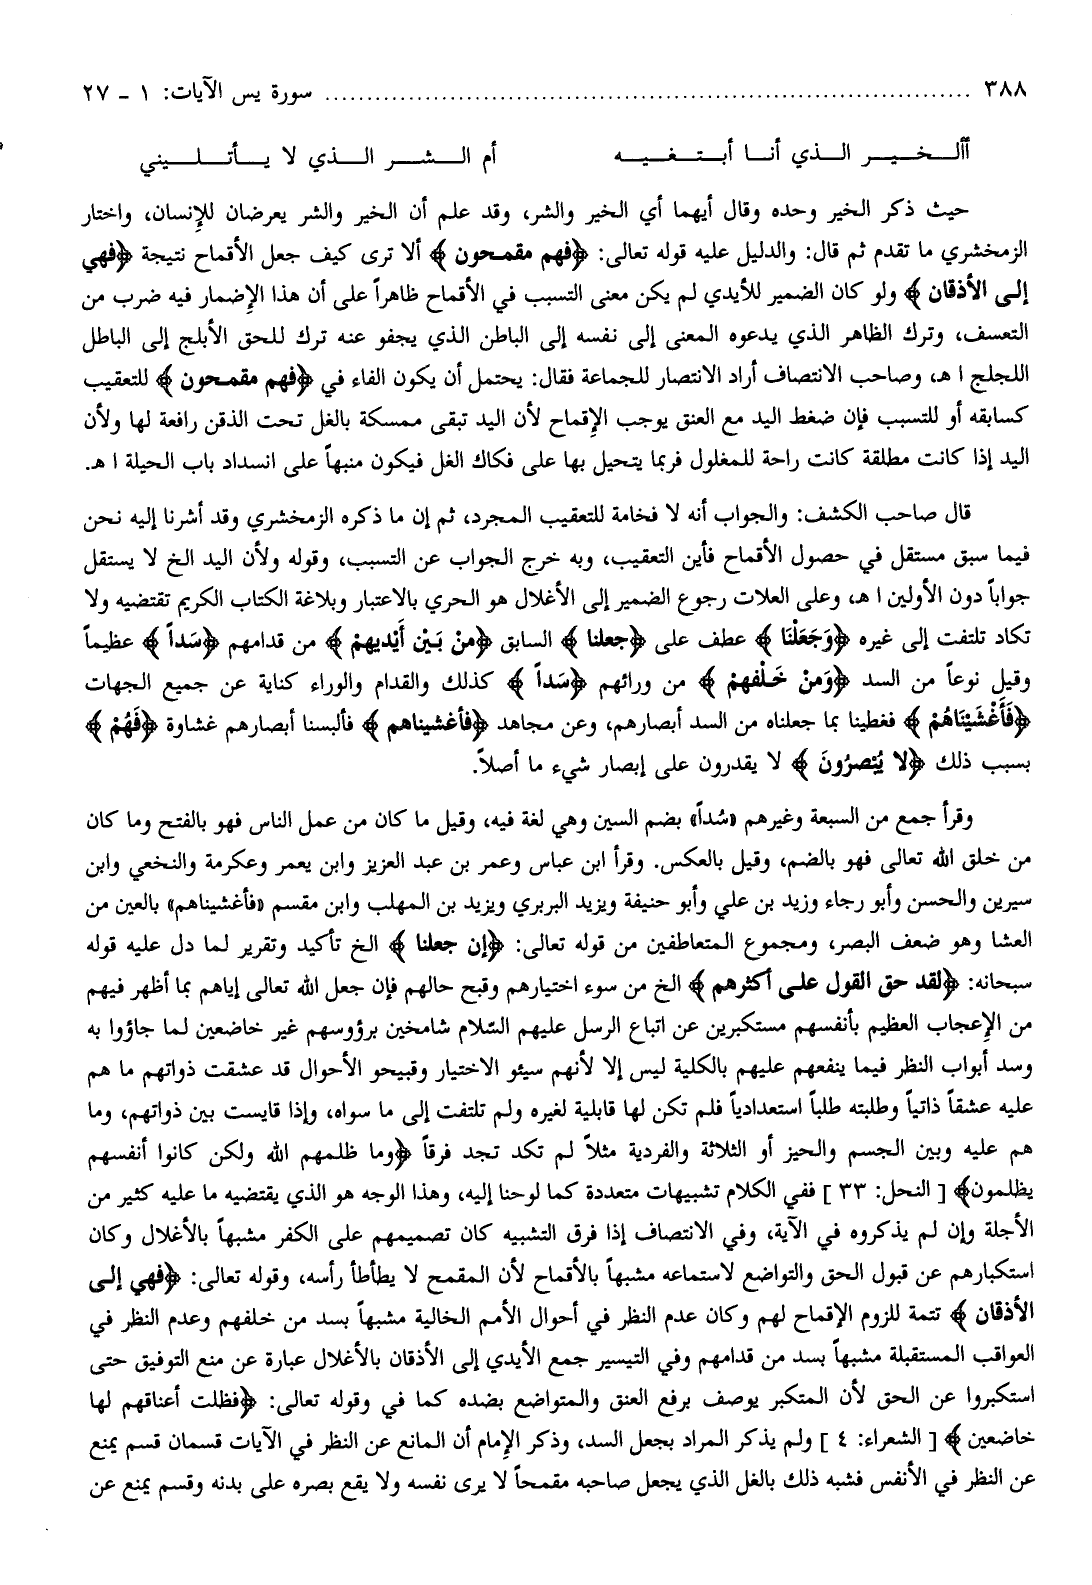 ٣٨٨ ........................................................................ سورة يس الآيات: ١ - ٢٧
أألـخـيـر الـذي أنـا أبـتـغـيـه أم الـشـر الـذي لا يـأتـلـيني
حيث ذكر الخير وحده وقال أيهما أي الخير والشر، وقد علم أن الخير والشر يعرضان للإنسان، واختار
الزمخشري ما تقدم ثم قال: والدليل عليه قوله تعالى: ﴿فهم مقمحون﴾ ألا ترى كيف جعل الأقماح نتيجة ﴿فهي
إلى الأذقان﴾ ولو كان الضمير للأيدي لم يكن معنى التسبب في الأقماح ظاهراً على أن هذا الإضمار فيه ضرب من
التعسف، وترك الظاهر الذي يدعوه المعنى إلى نفسه إلى الباطن الذي يجفو عنه ترك للحق الأبلج إلى الباطل
اللجلج ا هـ، وصاحب الانتصاف أراد الانتصار للجماعة فقال: يحتمل أن يكون الفاء في ﴿فهم مقمحون﴾ للتعقيب
كسابقه أو للتسبب فإن ضغط اليد مع العنق يوجب الإقماح لأن اليد تبقى ممسكة بالغل تحت الذقن رافعة لها ولأن
اليد إذا كانت مطلقة كانت راحة للمغلول فربما يتحيل بها على فكاك الغل فيكون منبهاً على انسداد باب الحيلة ا هـ.
قال صاحب الكشف: والجواب أنه لا فخامة للتعقيب المجرد، ثم إن ما ذكره الزمخشري وقد أشرنا إليه نحن
فيما سبق مستقل في حصول الأقماح فأين التعقيب، وبه خرج الجواب عن التسبب، وقوله ولأن اليد الخ لا يستقل
جواباً دون الأولين ا هـ، وعلى العلات رجوع الضمير إلى الأغلال هو الحري بالاعتبار وبلاغة الكتاب الكريم تقتضيه ولا
تكاد تلتفت إلى غيره ﴿وَجَعَلْنَا﴾ عطف على ﴿جعلنا﴾ السابق ﴿منْ بَيْن أَيْديهمْ﴾ من قدامهم ﴿سَداً﴾ عظيماً
وقيل نوعاً من السد ﴿وَمنْ خَلْفهمْ﴾ من ورائهم ﴿سَداً﴾ كذلك والقدام والوراء كناية عن جميع الجهات
﴿فَأَغْشَيْنَاهُمْ﴾ فغطينا بما جعلناه من السد أبصارهم، وعن مجاهد ﴿فأغشيناهم﴾ فألبسنا أبصارهم غشاوة ﴿فَهُمْ﴾
بسبب ذلك ﴿لا يُبْصرُونَ﴾ لا يقدرون على إبصار شيء ما أصلاً.
وقرأ جمع من السبعة وغيرهم «سُداً» بضم السين وهي لغة فيه، وقيل ما كان من عمل الناس فهو بالفتح وما كان
من خلق الله تعالى فهو بالضم، وقيل بالعكس. وقرأ ابن عباس وعمر بن عبد العزيز وابن يعمر وعكرمة والنخعي وابن
سيرين والحسن وأبو رجاء وزيد بن علي وأبو حنيفة ويزيد البربري ويزيد بن المهلب وابن مقسم «فأغشيناهم» بالعين من
العشا وهو ضعف البصر، ومجموع المتعاطفين من قوله تعالى: ﴿إن جعلنا﴾ الخ تأكيد وتقرير لما دل عليه قوله
سبحانه: ﴿لقد حق القول على أكثرهم﴾ الخ من سوء اختيارهم وقبح حالهم فإن جعل الله تعالى إياهم بما أظهر فيهم
من الإعجاب العظيم بأنفسهم مستكبرين عن اتباع الرسل عليهم السّلام شامخين برؤوسهم غير خاضعين لما جاؤوا به
وسد أبواب النظر فيما ينفعهم عليهم بالكلية ليس إلا لأنهم سيئو الاختيار وقبيحو الأحوال قد عشقت ذواتهم ما هم
عليه عشقاً ذاتياً وطلبته طلباً استعدادياً فلم تكن لها قابلية لغيره ولم تلتفت إلى ما سواه، وإذا قايست بين ذواتهم، وما
هم عليه وبين الجسم والحيز أو الثلاثة والفردية مثلاً لم تكد تجد فرقاً ﴿وما ظلمهم الله ولكن كانوا أنفسهم
يظلمون﴾ [النحل: ٣٣] ففي الكلام تشبيهات متعددة كما لوحنا إليه، وهذا الوجه هو الذي يقتضيه ما عليه كثير من
الأجلة وإن لم يذكروه في الآية، وفي الانتصاف إذا فرق التشبيه كان تصميمهم على الكفر مشبهاً بالأغلال وكان
استكبارهم عن قبول الحق والتواضع لاستماعه مشبهاً بالأقماح لأن المقمح لا يطأطأ رأسه، وقوله تعالى: ﴿فهي إلى
الأذقان﴾ تتمة للزوم الإقماح لهم وكان عدم النظر في أحوال الأمم الخالية مشبهاً بسد من خلفهم وعدم النظر في
العواقب المستقبلة مشبهاً بسد من قدامهم وفي التيسير جمع الأيدي إلى الأذقان بالأغلال عبارة عن منع التوفيق حتى
استكبروا عن الحق لأن المتكبر يوصف برفع العنق والمتواضع بضده كما في وقوله تعالى: ﴿فظلت أعناقهم لها
خاضعين﴾ [الشعراء: ٤] ولم يذكر المراد بجعل السد، وذكر الإمام أن المانع عن النظر في الآيات قسمان قسم يمنع
عن النظر في الأنفس فشبه ذلك بالغل الذي يجعل صاحبه مقمحاً لا يرى نفسه ولا يقع بصره على بدنه وقسم يمنع عن